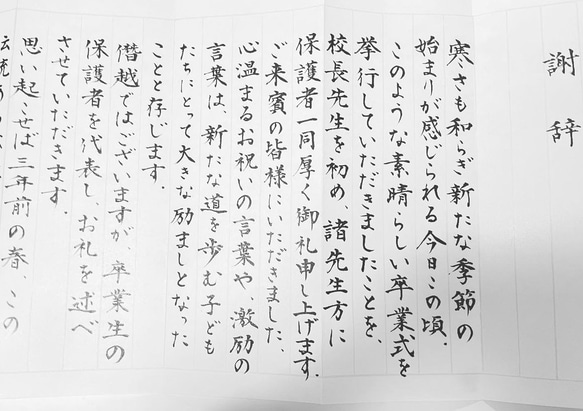 謝辞
寒さも和らぎ新たな季節の
始まりが感じられる今日この頃、
このような素晴らしい卒業式を
挙行していただきましたことを、
校長先生を初め、諸先生方に
保護者一同厚く御礼申し上げます。
ご来賓の皆様にいただきました、
心温まるお祝いの言葉や、激励の
言葉は、新たな道を歩む子ども
たちにとって大きな励ましとなった
ことと存じます。
僭越ではございますが、卒業生の
保護者を代表し、お礼を述べ
させていただきます。
思い起こせば三年前の春、この